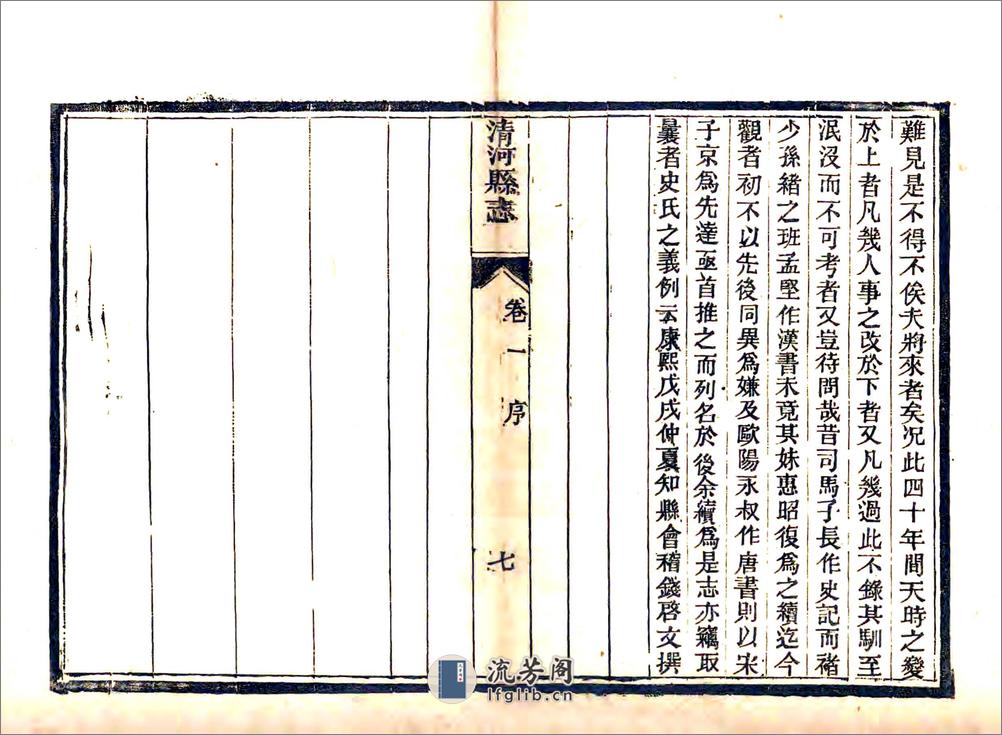 難見是不得不俟夫將來者矣况此四十年間天時之變
於上者凡幾人事之改於下者又凡幾過此不錄其馴至
泯沒而不可考者又豈待問哉昔司馬子長作史記而褚
少孫緒之班孟堅作漢書未竟其妹惠昭復爲之續迄今
觀者初不以先後同異爲嫌及歐陽永叔作唐書則以宋
子京爲先達亟首推之而列名於後余續爲是志亦竊取
曩者史氏之義例云康熙戊戌仲夏知縣會稽錢啓文撰
清河縣志
卷一 序
七
流芳阁
lfglib.cn